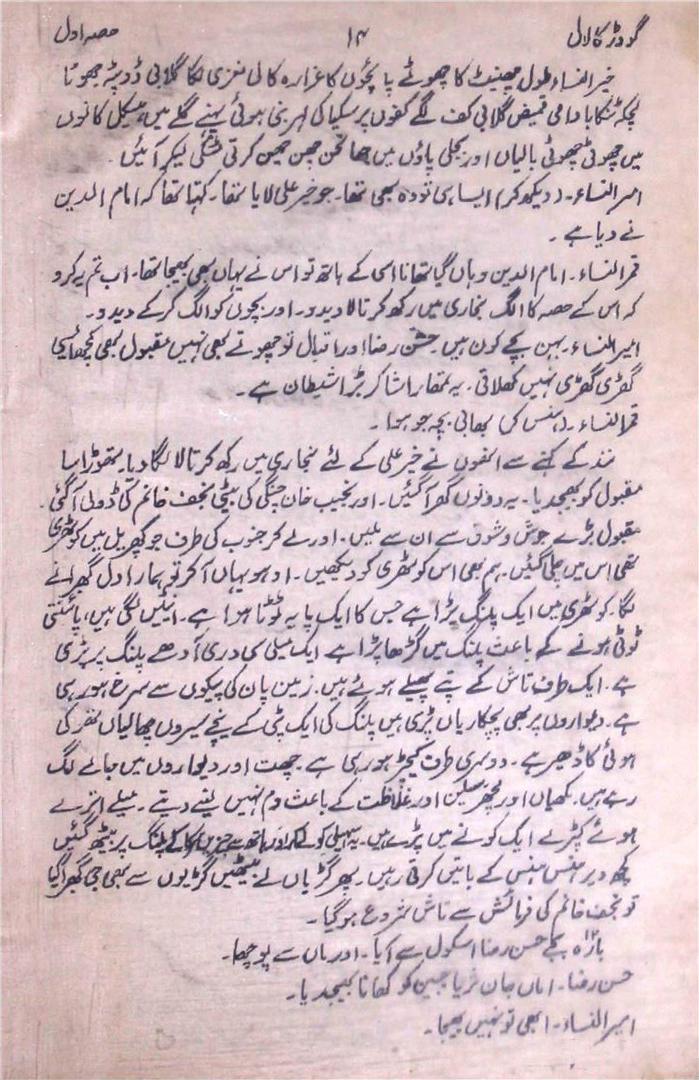 گودڑ کا لال ۱۴ حصہ اول
خیر النساء طول چھینٹ کا چھوٹے پائچوں کا غرارہ کالی نغزی لگا گلابی ڈوپٹہ جھوٹا
لچکہ ٹنکا بادامی قمیض گلابی کف لگے کفوں پر سکیا کی لہر بنی ہوئی پہنے گلے میں ہیکل کانوں
میں چھوٹی چھوٹی بالیاں اور بجلی پاؤں میں جھانجن چھن چھن کرتی مٹکی لیکر آئیں۔
امیر النساء۔ (دیکھ کر) ایسا ہی تو وہ بھی تھا۔ جو خیر علی لایا تھا۔ کہتا تھا کہ امام الدین
نے دیا ہے۔
قمر النساء۔ امام الدین وہاں گیا تھا نا اسی کے ہاتھ تو اس نے یہاں بھی بھیجا تھا۔ اب تم یہ کرو
کہ اس کے حصہ کا الگ بخاری میں رکھ کر تالا دیدو۔ اور بچوں کو الگ کر کے دیدو۔
امیر النساء۔ بہن بچے کون ہیں حسن رضا اور اقبال تو چھوتے بھی نہیں مقبول بھی کچھ ایسی
گھڑی گھڑی نہیں کھلاتی۔ یہ تمھارا شاکر بڑا شیطان ہے۔
قمر النساء۔ (ہنس کر) بھابی بچہ جو ہوا۔
نند کے کہنے سے انھوں نے خیر علی کے لئے بخاری میں رکھ کر تالا لگا دیا۔ تھوڑا سا
مقبول کو بھیجدیا۔ یہ دونوں گھر آگئیں۔ اور نجیب خان چنگی کی بیٹی نجف خانم کی ڈولی آگئی۔
مقبول بڑے جوش و شوق سے ان سے ملیں۔ اور لے کر جنوب کی طرف جو کھپریل میں کوٹھری
تھی اس میں چلی گئیں۔ ہم بھی اس کوٹھری کو دیکھیں۔ اوہو یہاں آکر تو ہمارا دل گھبرانے
لگا۔ کوٹھری میں ایک پلنگ پڑا ہے جس کا ایک پایہ ٹوٹا ہوا ہے۔ اینٹیں لگی ہیں، پائنتی
ٹوٹی ہونے کے باعث پلنگ میں گڑھا پڑا ہے ایک میلی سی دری آدھے پلنگ پر پڑی
ہے۔ ایک طرف تاش کے پتے پھیلے ہوئے ہیں۔ زمین پان کی پیکوں سے سرخ ہو رہی
ہے۔ دیواروں پر بھی پچکاریاں پڑی ہیں پلنگ کی ایک پٹی کے نیچے سیروں چھالیاں کتر کی
ہوئی کا ڈھیر ہے۔ دوسری طرف کیچڑ ہو رہی ہے۔ چھت اور دیواروں میں جالے لگ
رہے ہیں۔ مکھیاں اور مچھر سیلن اور غلاظت کے باعث دم نہیں لینے دیتے۔ میلے اترے
ہوئے کپڑے ایک کونے میں پڑے ہیں۔ یہ سہیلی کو لے کر اور ہاتھ سے پلنگ پر بیٹھ گئیں
کچھ دیر ہنس ہنس کے باتیں کرتی رہیں۔ پھر گڑیاں لے بیٹھیں گڑیوں سے بھی جی گھبرا گیا
تو نجف خانم کی فرمائش سے تاش شروع ہوگیا۔
بارہ بجے حسن رضا اسکول سے آیا۔ اور ماں سے پوچھا۔
حسن رضا۔ اماں جان ثریا جبین کو کھانا بھیجدیا۔
امیر النساء۔ ابھی تو نہیں بھیجا۔